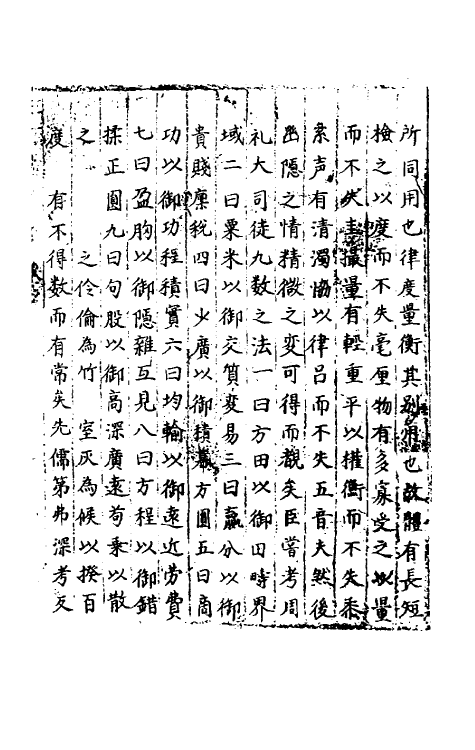 所同用也律度量衡其别用也故體有長短
檢之以度而不失毫厘物有多寡受之以量
而不失圭撮量有輕重平以權衡而不失黍
絫声有清濁協以律呂而不失五音夫然後
幽隠之情精微之变可得而觀矣臣嘗考周
礼大司徒九数之法一曰方田以御田時界
域二曰粟米以御交質变易三曰贏分以御
貴賤廩稅四曰少廣以御積冪方圓五曰商
功以御功程積實六曰均輸以御遠近劳費
七曰盈朒以御隠雜互見八曰方程以御錯
揉正圓九曰句股以御高深廣遠苟乗以散
之 之伶倫為竹 室灰為候以揆百
度 有不得数而有常矣先儒第弗深考